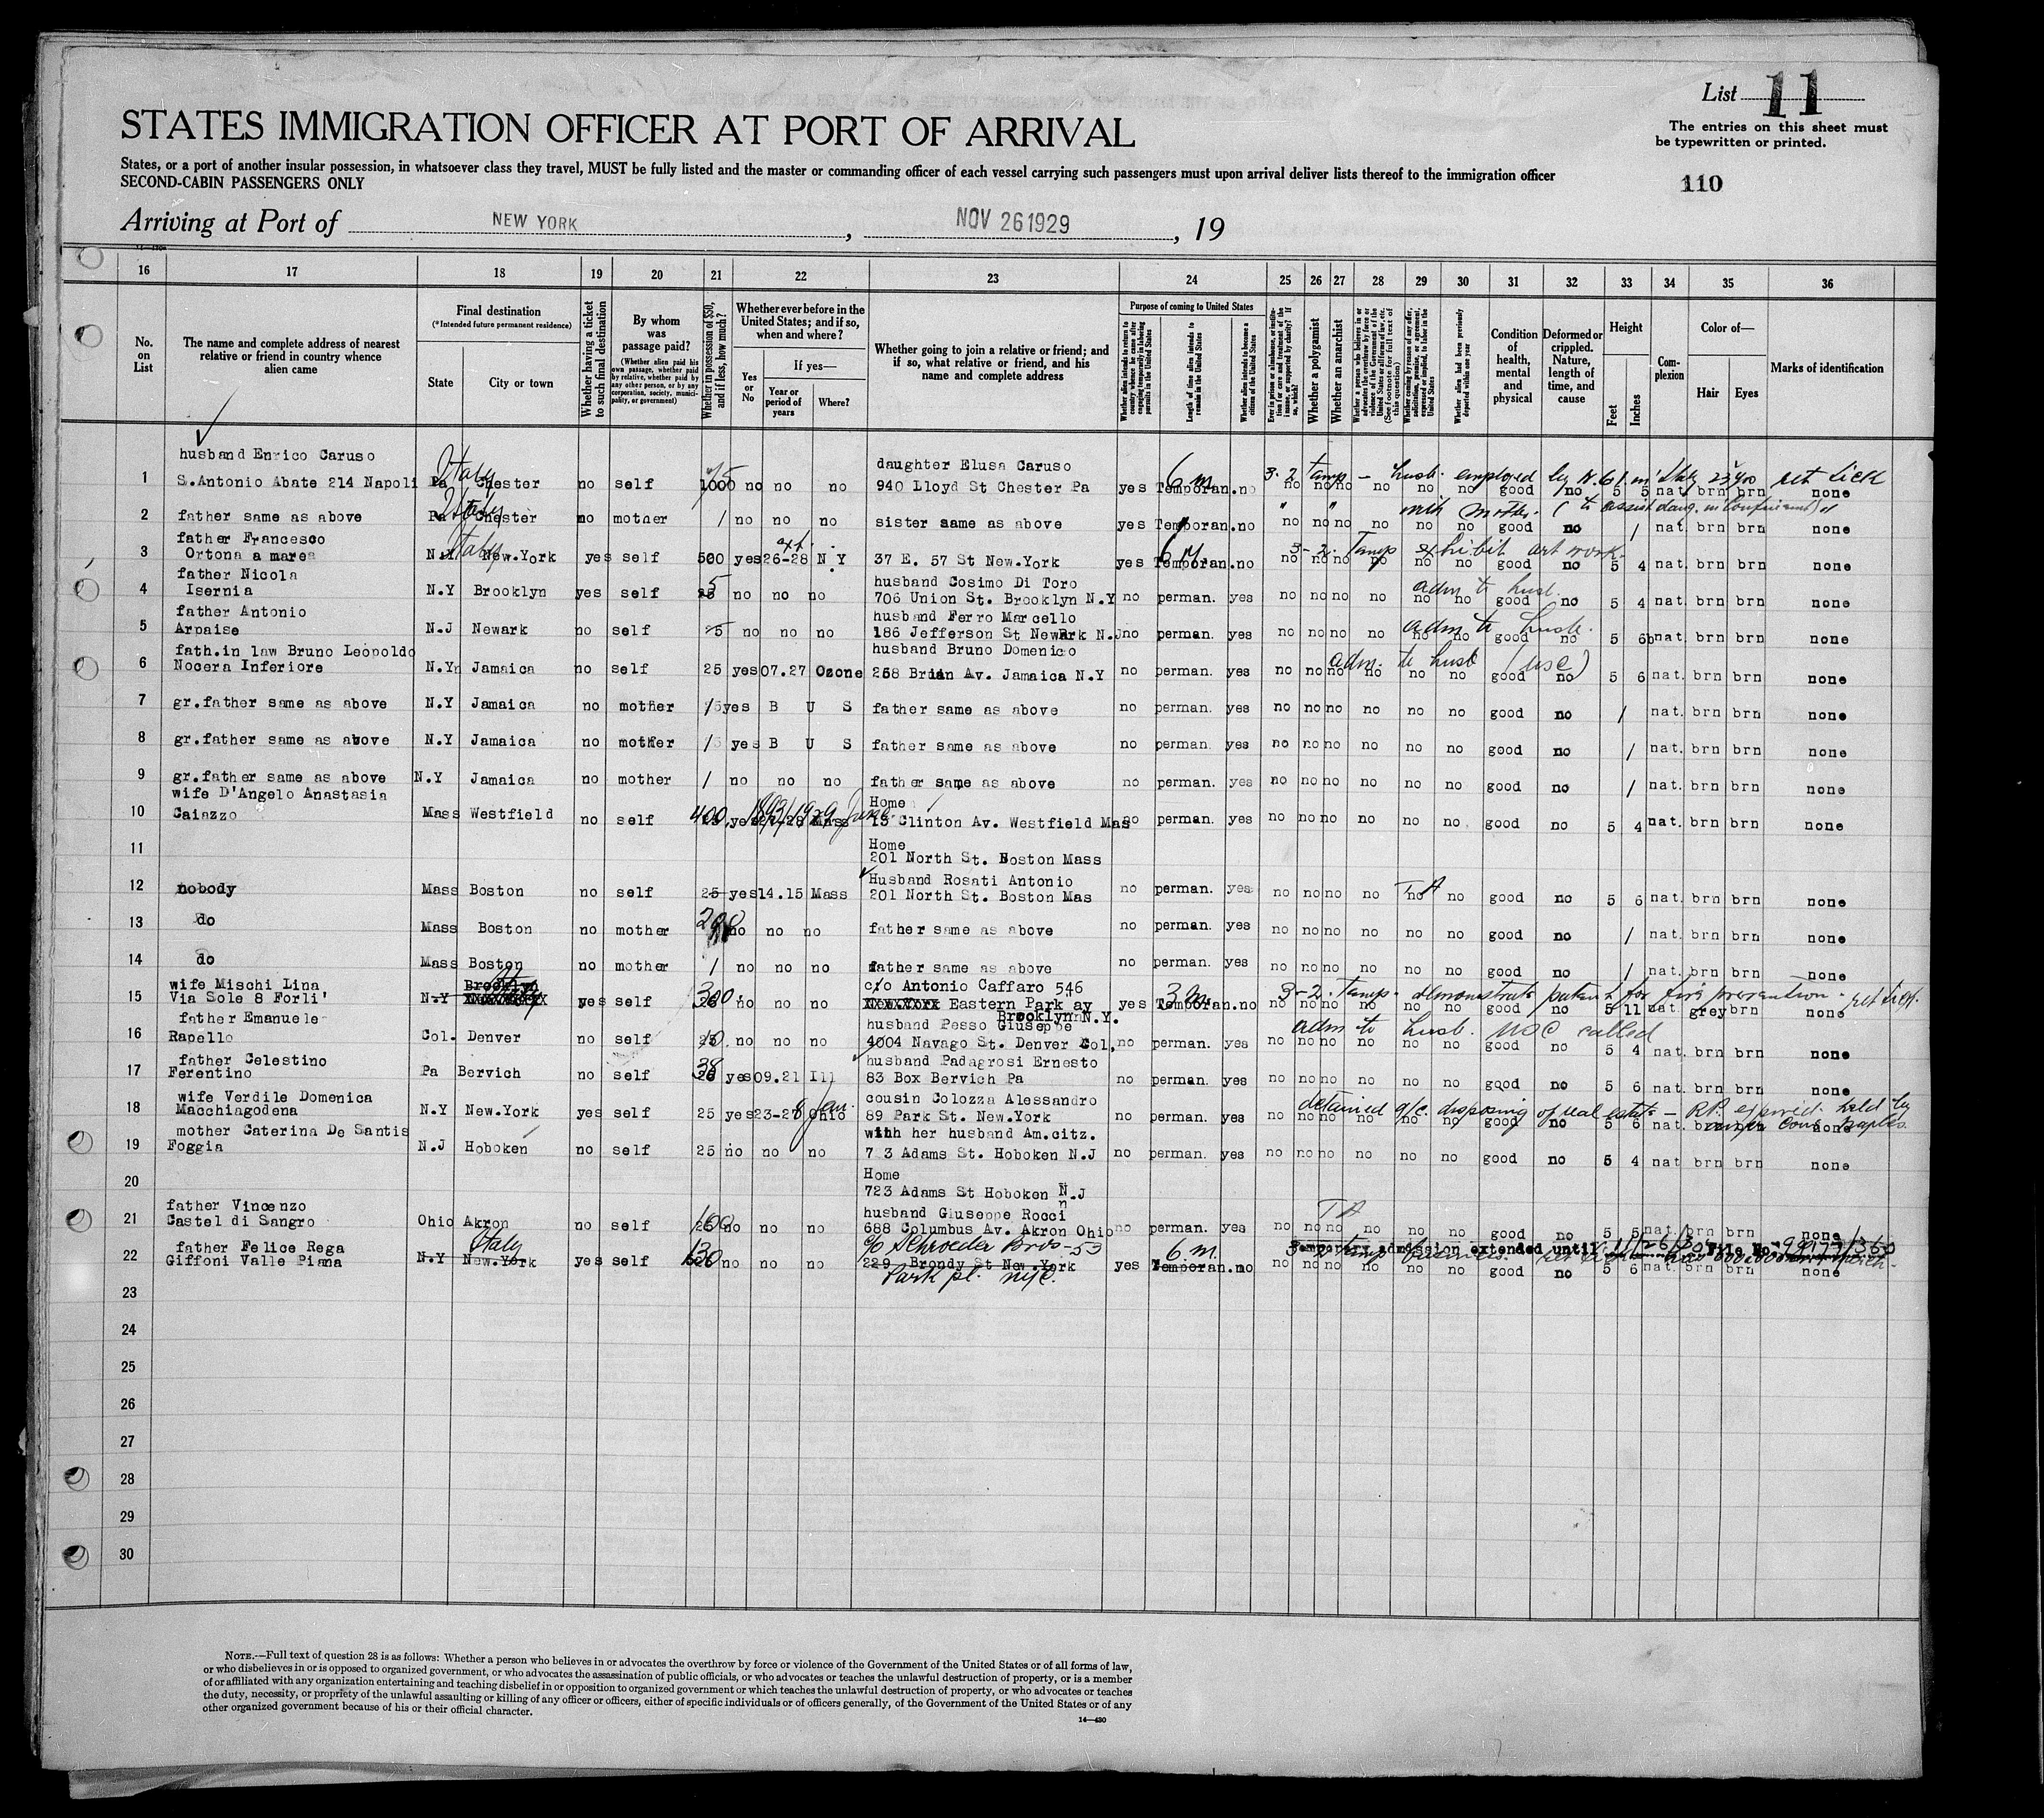 List 11
STATES IMMIGRATION OFFICER AT PORT OF ARRIVAL
The entries on this sheet must
be typewritten or printed.
States, or a port of another insular possession, in whatsoever class they travel, MUST be fully listed and the master or commanding officer of each vessel carrying such passengers must upon arrival deliver lists thereof to the immigration officer
SECOND-CABIN PASSENGERS ONLY
110
Arriving at Port of NEW YORK, NOV 26 1929, 19
16 17 18 19 20 21 22 23 24 25 26 27 28 29 30 31 32 33 34 35 36
No. on List
The name and complete address of nearest relative or friend in country whence alien came
Final destination
(*Intended future permanent residence)
State
City or town
Whether having a ticket to such final destination
By whom was passage paid?
(Whether alien paid his own passage, whether paid by relative, whether paid by any other person, or by any corporation, society, municipality, or government)
Whether in possession of $50, and if less, how much?
Whether ever before in the United States; and if so, when and where?
Yes or No
If yes—
Year or period of years
Where?
Whether going to join a relative or friend; and if so, what relative or friend, and his name and complete address
Purpose of coming to United States
Length of time alien intends to remain in the United States
Whether alien intends to become a citizen of the United States
Whether a polygamist
Whether an anarchist
Condition of health, mental and physical
Deformed or crippled. Nature, length of time, and cause
Height
Feet
Inches
Complexion
Color of—
Hair
Eyes
Marks of identification
husband Enrico Caruso daughter Elusa Caruso
1 S.Antonio Abate 214 Napoli Pa Chester Italy no self 1000 no no no 940 Lloyd St Chester Pa yes Temporan. 6 m no no no no no no no good no 5 5 nat brn brn none
2 father same as above Pa Chester Italy no mother / no no no sister same as above yes Temporan. no no no no no no no good no / nat. brn brn none
father Francesco
3 Ortona a mare N.Y New.York Italy yes self 500 yes 26-28 N Y 37 E. 57 St New.York yes Temporan. no no no no no no no good no 5 4 nat. brn brn none
3-2. Temp exhibit art work
father Nicola husband Cosimo Di Toro adm to husb.
4 Isernia N.Y Brooklyn yes self 25 no no no 706 Union St. Brooklyn N.Y no perman. yes no no no no no no good no 5 4 nat. brn brn none
father Antonio husband Ferro Marcello adm to husb.
5 Arpaise N.J Newark no self 25 no no no 186 Jefferson St Newark N.J no perman. yes no no no no no no good no 5 6 nat. brn brn none
fath.in law Bruno Leopoldo husband Bruno Domenico adm. to husb (USC)
6 Nocera Inferiore N.Y Jamaica no self 25 yes 07.27 Ozone 258 Brian Av. Jamaica N.Y no perman. yes no no no no no no good no 5 6 nat. brn brn none
7 gr.father same as above N.Y Jamaica no mother / yes B U S father same as above no perman. yes no no no no no no good no / nat. brn brn none
8 gr.father same as above N.Y Jamaica no mother / yes B U S father same as above no perman. yes no no no no no no good no / nat. brn brn none
9 gr.father same as above N.Y Jamaica no mother / no no no father same as above no perman. yes no no no no no no good no / nat. brn brn none
wife D'Angelo Anastasia Home
10 Caiazzo Mass Westfield no self 400 yes Mass 13 Clinton Av. Westfield Mas no perman. yes no no no no no no good no 5 4 nat. brn brn none
11 Home
201 North St. Boston Mass
Husband Rosati Antonio
12 nobody Mass Boston no self 25 yes 14.15 Mass 201 North St. Boston Mas no perman. yes no no no no no no good no 5 6 nat. brn brn none
13 do Mass Boston no mother no no no father same as above no perman. yes no no no no no no good no / nat. brn brn none
14 do Mass Boston no mother / no no no father same as above no perman. yes no no no no no no good no / nat. brn brn none
wife Mischi Lina Brooklyn c/o Antonio Caffaro 546
15 Via Sole 8 Forli' N.Y yes self 300 no no no Eastern Park ay Brooklyn N.Y. yes Temporan. 3 m. no no no no no no no good no 5 11 nat. grey brn none
3-2. Temp. demonstrate patent for fire prevention
father Emanuele husband Pesso Giuseppe adm to husb. USC called
16 Rapello Col. Denver no self no no no 4004 Navago St. Denver Col. no perman. yes no no no no no no good no 5 4 nat. brn brn none
father Celestino husband Padagrosi Ernesto
17 Ferentino Pa Bervich no self 38 yes 09.21 Ill 83 Box Bervich Pa no perman. yes no no no no no no good no 5 6 nat. brn brn none
wife Verdile Domenica cousin Colozza Alessandro
18 Macchiagodena N.Y New.York yes self 25 yes 23-28 Ohio 89 Park St. New.York no perman. yes no no no no no no good no 5 6 nat. brn none
detained a/c disposing of real estate - R.P. expired. held by Naples
mother Caterina De Santis with her husband Am.citz.
19 Foggia N.J Hoboken no self 25 no no no 7 3 Adams St. Hoboken N.J no perman. yes no no no no no no good no 5 4 nat. brn brn none
20 Home
723 Adams St Hoboken N.J
father Vincenzo husband Giuseppe Rocci
21 Castel di Sangro Ohio Akron no self 100 no no no 688 Columbus Av. Akron Ohio no perman. yes no no no no no no good no 5 5 nat. brn brn none
father Felice Rega Italy c/o Schroeder Bros-53 6 m. Temporary admission extended until 11/26/30 File No. 99177/360
22 Giffoni Valle Piana N.Y New.York yes self no no no 229 Brondy St New.York yes Temporan. no no no no no no no good no 5 6 nat. brn brn none
Park pl. nyc.
23
24
25
26
27
28
29
30
NOTE.—Full text of question 28 is as follows: Whether a person who believes in or advocates the overthrow by force or violence of the Government of the United States or of all forms of law,
or who disbelieves in or is opposed to organized government, or who advocates the assassination of public officials, or who advocates or teaches the unlawful destruction of property, or is a member
of or affiliated with any organization entertaining and teaching disbelief in or opposition to organized government or which teaches the unlawful destruction of property, or who advocates or teaches
the duty, necessity, or propriety of the unlawful assaulting or killing of any officer or officers, either of specific individuals or of officers generally, of the Government of the United States or of any
other organized government because of his or their official character.
14—430